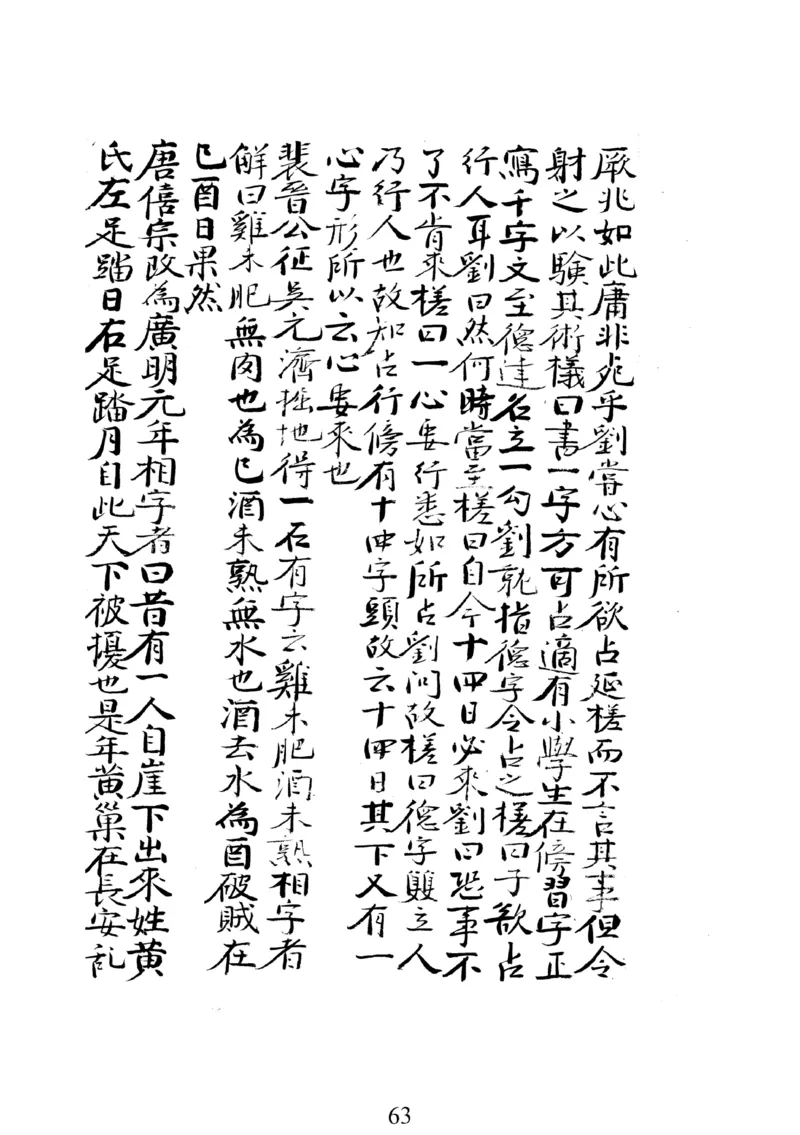 厥兆如此庸非兆乎劉嘗心有所欲占延槎而不言其事但令
射之以驗其術檥曰書一字方可占適有小學生在傍習字正
寫千字文至德建名立一勾劉就指德字令占之槎曰子欲占
行人耳劉曰然何時當至槎曰自今十四日必來劉曰恐事不
了不肯來槎曰一心要行悉如所占劉问故槎曰德字雙立人
乃行人也故知占行傍有十四字頭故云十四日其下又有一
心字形所以云心要來也
裴晉公征吳元濟掘地得一石有字云雞未肥酒未熟相字者
解曰雞未肥無肉也為己酒未熟無水也酒去水為酉破賊在
己酉日果然
唐僖宗改為廣明元年相字者曰昔有一人自崖下出來姓黃
氏左足踏日右足踏月自此天下被擾也是年黃巢在長安乱
63